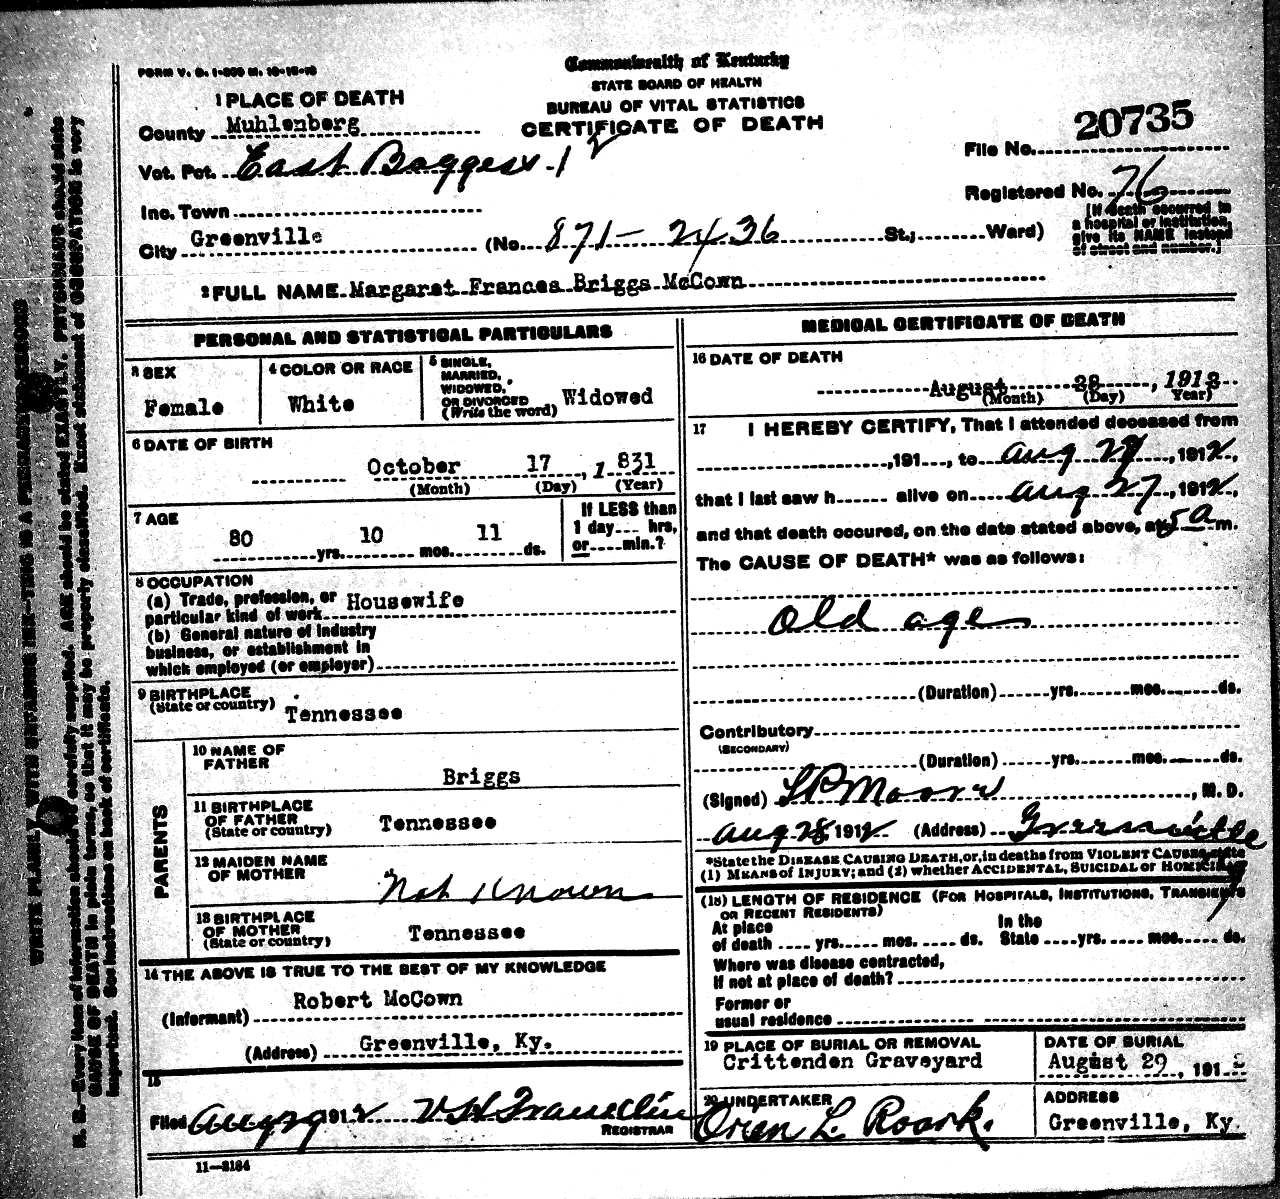 FORM V. S. 1-200 M. 10-15-10
Commonwealth of Kentucky
STATE BOARD OF HEALTH
BUREAU OF VITAL STATISTICS
CERTIFICATE OF DEATH
1 PLACE OF DEATH
County Muhlenberg
Vot. Pct. East Boggess-1
Inc. Town
City Greenville (No. 871- 2436 St.; Ward)
File No. 20735
Registered No. 76
[If death occurred in
a hospital or institution,
give its NAME instead
of street and number.]
2 FULL NAME Margaret Frances Briggs McCown
PERSONAL AND STATISTICAL PARTICULARS
3 SEX
Female
4 COLOR OR RACE
White
5 SINGLE,
MARRIED,
WIDOWED,
OR DIVORCED
(Write the word) Widowed
6 DATE OF BIRTH
October 17, 1831
(Month) (Day) (Year)
7 AGE
80 yrs. 10 mos. 11 ds.
If LESS than
1 day hrs,
or min.?
8 OCCUPATION
(a) Trade, profession, or
particular kind of work Housewife
(b) General nature of industry
business, or establishment in
which employed (or employer)
9 BIRTHPLACE
(State or country) Tennessee
PARENTS
10 NAME OF
FATHER
Briggs
11 BIRTHPLACE
OF FATHER
(State or country) Tennessee
12 MAIDEN NAME
OF MOTHER
Not Known
13 BIRTHPLACE
OF MOTHER
(State or country) Tennessee
14 THE ABOVE IS TRUE TO THE BEST OF MY KNOWLEDGE
(Informant) Robert McCown
(Address) Greenville, Ky.
15
Filed Aug 29 1912
REGISTRAR
MEDICAL CERTIFICATE OF DEATH
16 DATE OF DEATH
August 28, 1912
(Month) (Day) (Year)
17 I HEREBY CERTIFY, That I attended deceased from
,191 , to Aug 27, 1912,
that I last saw h alive on Aug 27, 1912,
and that death occured, on the date stated above, at 5 a m.
The CAUSE OF DEATH* was as follows:
Old age
(Duration) yrs. mos. ds.
Contributory
(SECONDARY)
(Duration) yrs. mos. ds.
(Signed) Moore, M. D.
Aug 28 1912 (Address) Greenville
*State the DISEASE CAUSING DEATH, or, in deaths from VIOLENT CAUSES, state
(1) MEANS of INJURY; and (2) whether ACCIDENTAL, SUICIDAL or HOMICIDAL
(18) LENGTH OF RESIDENCE (FOR HOSPITALS, INSTITUTIONS, TRANSIENTS
OR RECENT RESIDENTS)
At place In the
of death yrs. mos. ds. State yrs. mos. ds.
Where was disease contracted,
If not at place of death?
Former or
usual residence
19 PLACE OF BURIAL OR REMOVAL
Crittenden Graveyard
DATE OF BURIAL
August 29, 1912
20 UNDERTAKER
Orien L. Roark.
ADDRESS
Greenville, Ky.
11—3184
N. B.—Every item of information should be carefully supplied. AGE should be stated EXACTLY. PHYSICIANS should state
CAUSE OF DEATH in plain terms, so that it may be properly classified. Exact statement of OCCUPATION is very
important. See instructions on back of certificate.